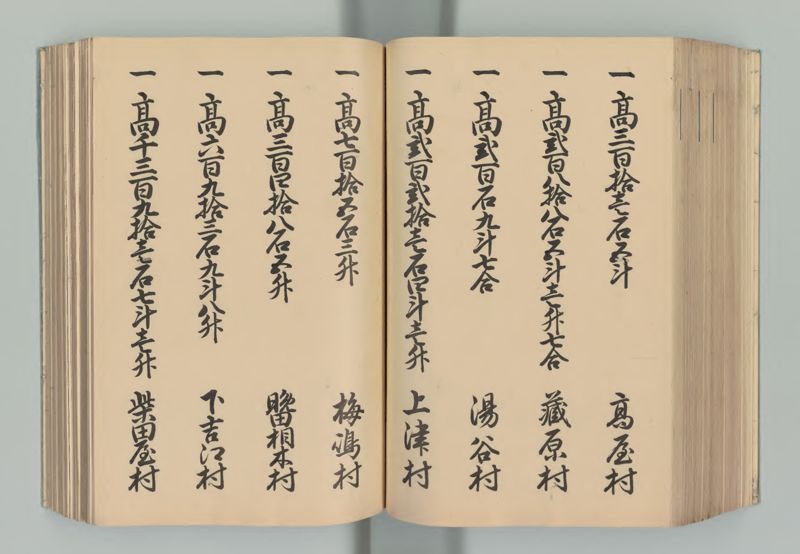 一 高三百拾壱石五斗 高屋村
一 高弐百八拾八石五斗壱升七合 蔵原村
一 高弐百石九斗七合 湯谷村
一 高弐百弐拾壱石四斗壱升 上津村
一 高七百拾五石三升 梅嶋村
一 高三百四拾八石五升 相木村
一 高六百九拾三石九斗八升 下吉江村
一 高千三百九拾壱石七斗壱升 柴田屋村